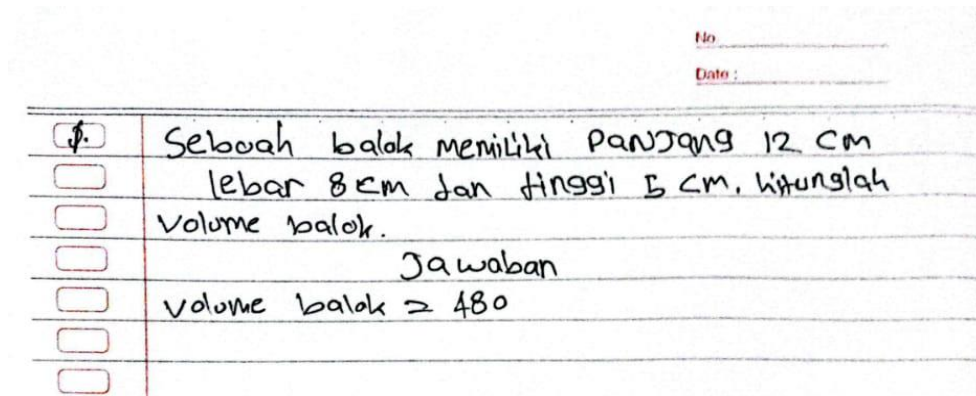 No
Date :
1. Sebuah balok memiliki Panjang 12 cm
lebar 8 cm dan tinggi 5 cm. hitunglah
volume balok.
Jawaban
volume balok = 480